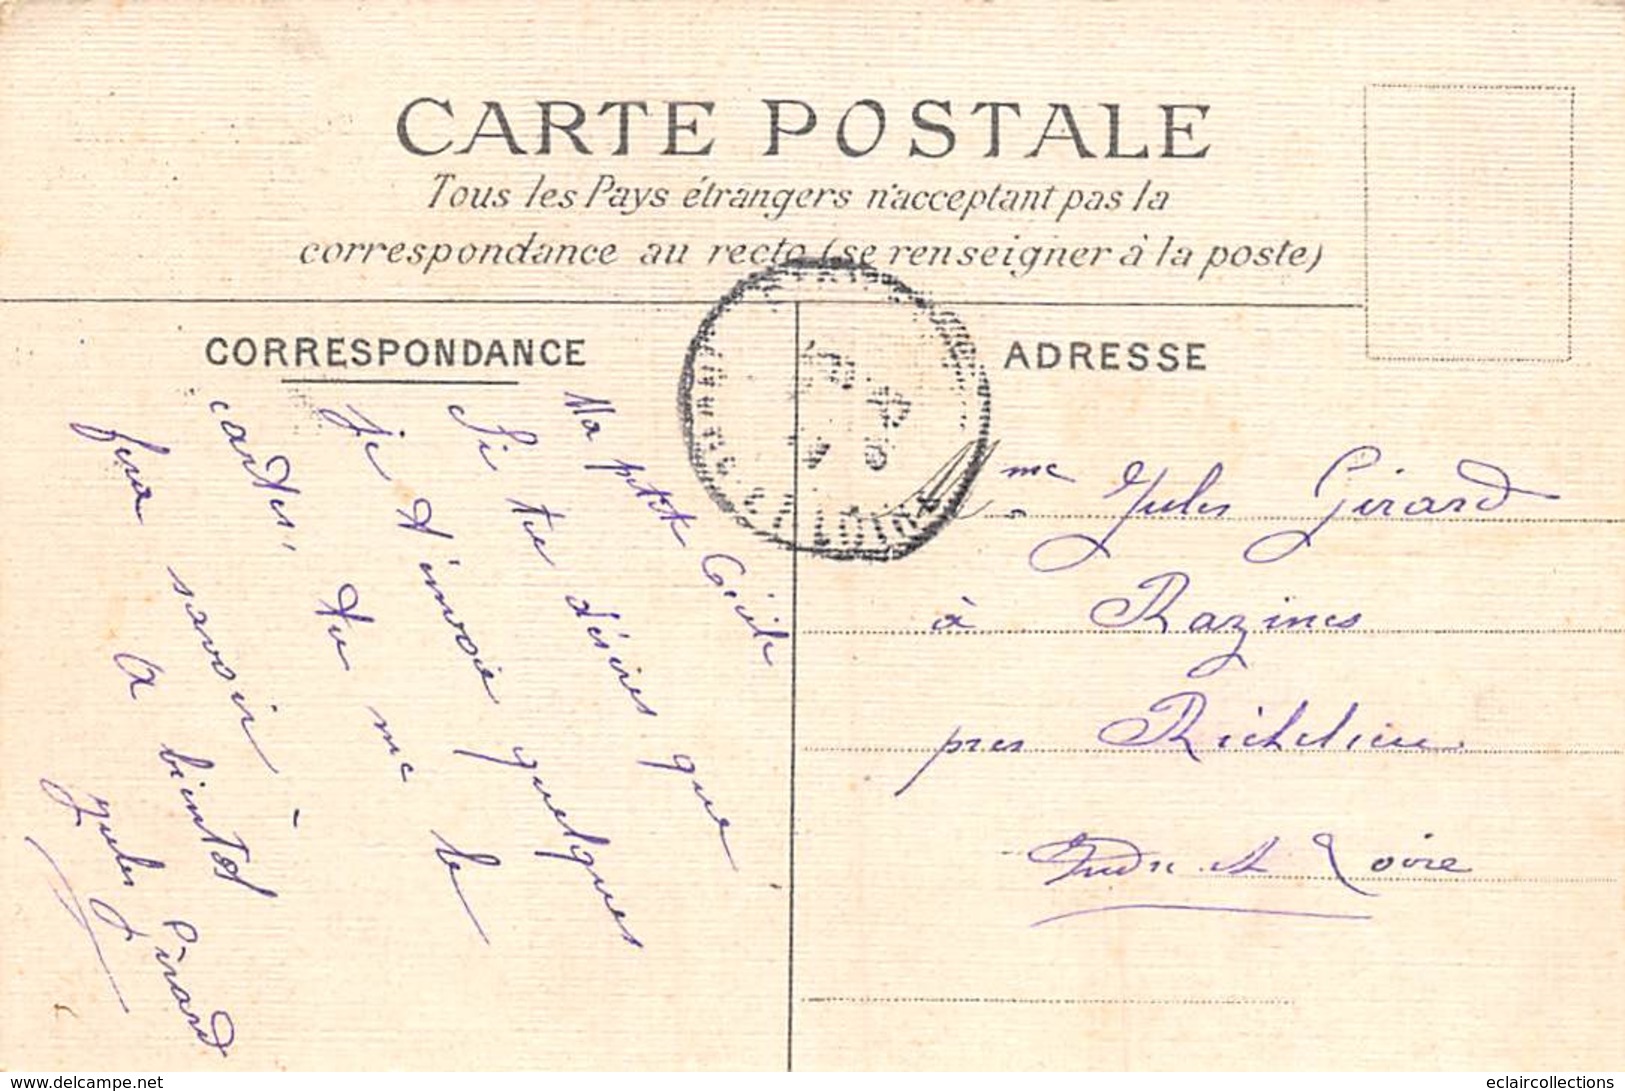 CARTE POSTALE
Tous les Pays étrangers n'acceptant pas la
correspondance au recto (se renseigner à la poste)
CORRESPONDANCE
Ma ptite Cécile
Si tu désires que
je t'envoie quelques
cartes, tu me le
fera savoir
A bientot
Jules Girard
ADRESSE
Mme Jules Girard
à Razines
pres Richelieu
Indre et Loire
www.delcampe.net
eclaircollections